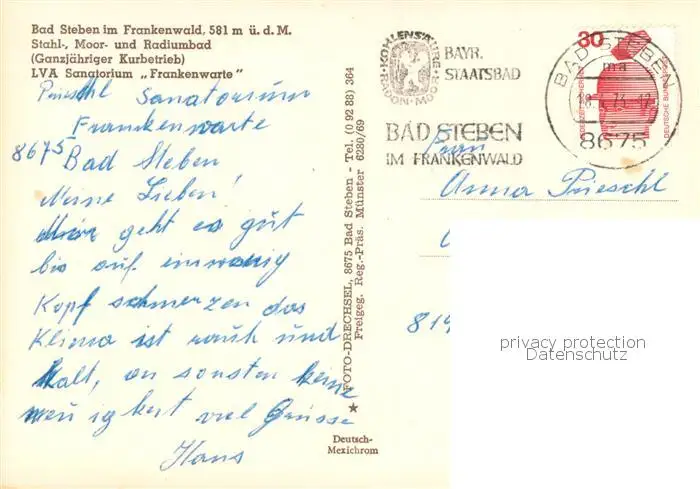 Bad Steben im Frankenwald, 581 m ü. d. M.
Stahl-, Moor- und Radiumbad
(Ganzjähriger Kurbetrieb)
LVA Sanatorium „Frankenwarte"
Prieschl Sanatorium
Frankenwarte
8675 Bad Steben
Meine Lieben!
Mir geht es gut
bis auf ein wenig
Kopf schmerzen das
Klima ist rauh und
kalt, an sonsten keine
neu ig keit viel Grüsse
Hans
FOTO-DRECHSEL, 8675 Bad Steben - Tel. (0 92 88) 364
Freigeg. Reg.-Präs. Münster 6280/69
Deutsch-
Mexichrom
KOHLENSÄURE
RADON MOOR
BAYR.
STAATSBAD
BAD STEBEN
IM FRANKENWALD
30
DEUTSCHE BUNDESPOST
BAD STEBEN
ma
8675
Frau
Anna Prieschl
819
privacy protection
Datenschutz